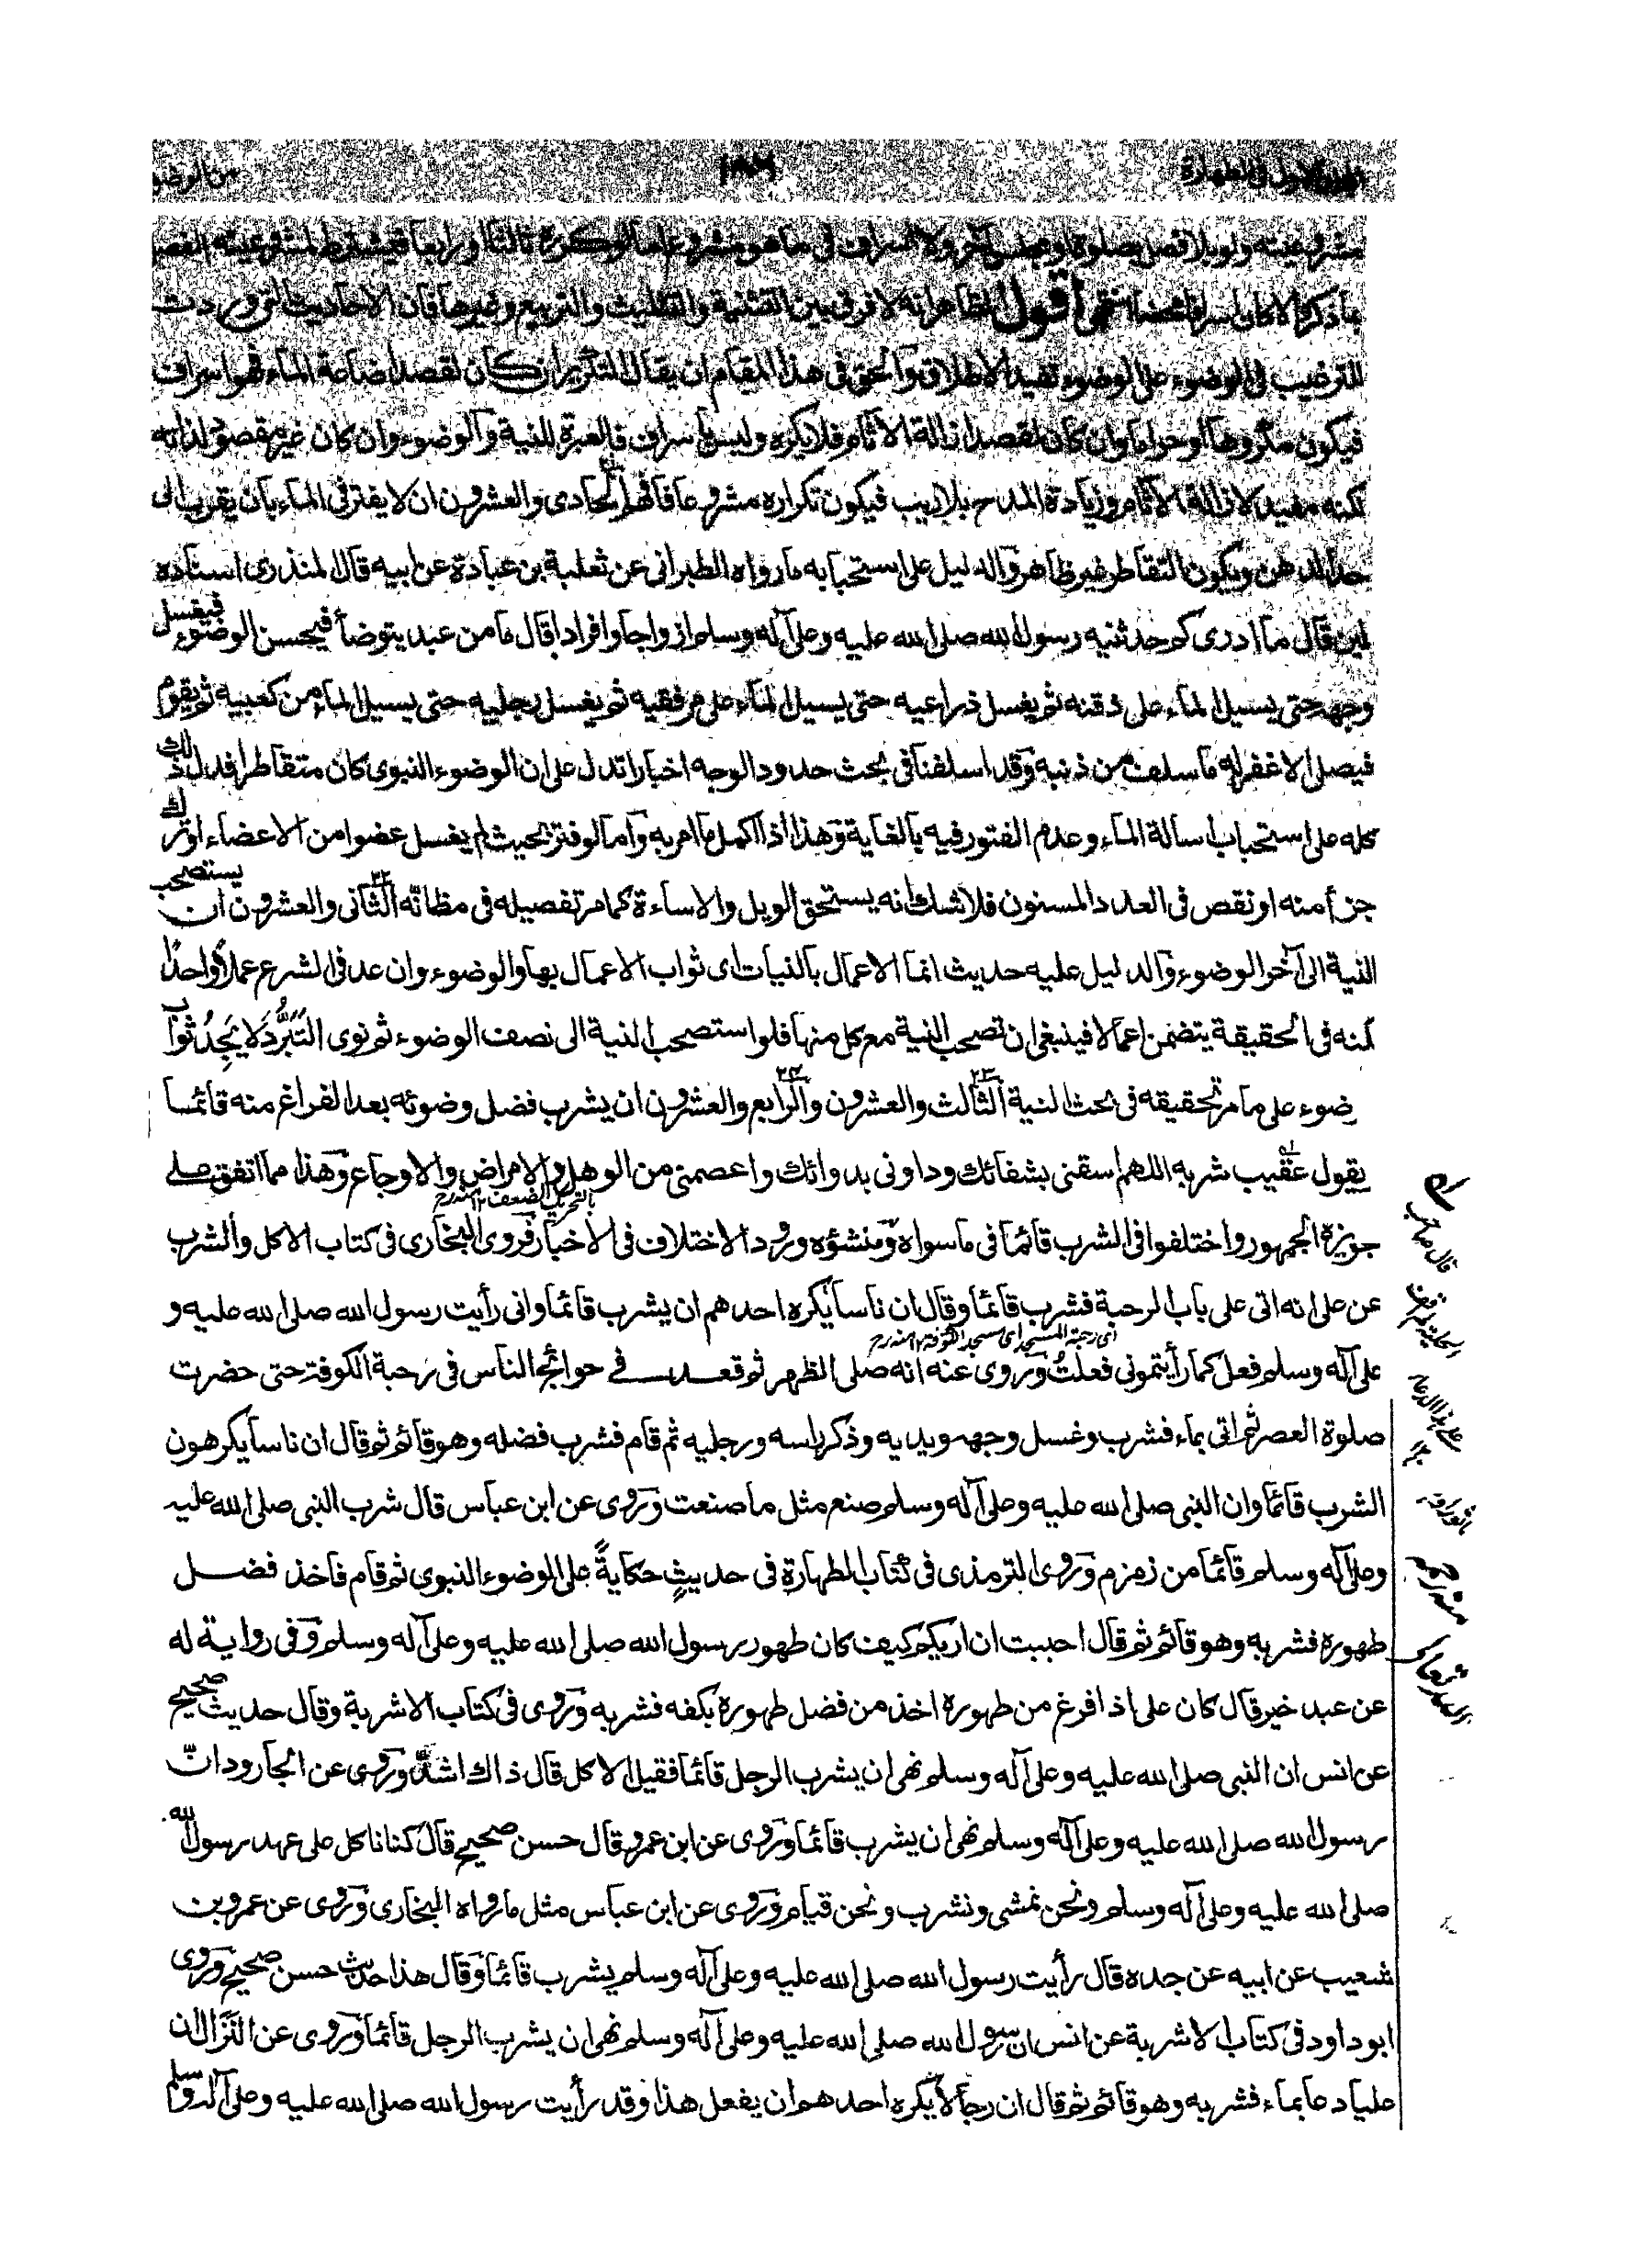 الاول فى الطهارة
١٨٢
من الوضو
مشروعيته ولو بلا فصل بصلوة او مجلس آخر ولا اسراف فى ما هو مشروع اما لو كرره ثالثا او رابعا فيشترط لمشروعيته الفصل
بما ذكر والا كان اسرافا محضا انتهى اقول الظاهر انه لا فرق بين التثنية والتثليث والتربيع وغيرها فان الاحاديث التى وردت
للترغيب فى الوضوء على الوضوء تفيد الاطلاق وآلحق فى هذا المقام ان يقال التكرير ان كان لقصد اضاعة الماء فهو اسراف
فيكون مكروها او حراما وان كان لقصد ازالة الآثام فلا يكره وليس باسراف فالعبرة للنية وآلوضوء وان كان غير مقصود لذاته
لكنه مفيد لازالة الآثام وزيادة المدح بلا ريب فيكون تكراره مشروعا فافهم الحادى والعشرون ان لا يفتر فى الماء بان يقرب الى
حد الدهن ويكون التقاطر غير ظاهر وآلدليل على استحبابه ما رواه الطبرانى عن ثعلبة بن عبادة عن ابيه قال المنذرى اسناده
لين قال ما ادرى كم حدثنيه رسول الله صلى الله عليه وعلى آله وسلم ازواجا وافرادا قال ما من عبد يتوضأ فيحسن الوضوء فيغسل
وجهه حتى يسيل الماء على ذقنه ثم يغسل ذراعيه حتى يسيل الماء على مرفقيه ثم يغسل رجليه حتى يسيل الماء من كعبيه ثم يقوم
فيصلى الا غفر له ما سلف من ذنبه وقد اسلفنا فى بحث حدود الوجه اخبارا تدل على ان الوضوء النبوى كان متقاطرا فدل ذلك
كله على استحباب اسالة الماء وعدم الفتور فيه بالغاية وهذا اذا اكمل ما امر به وآما لو فتر بحيث لم يغسل عضوا من الاعضاء او ترك
جزأ منه او نقص فى العدد المسنون فلا شك انه يستحق الويل والاساءة كما مر تفصيله فى مظانه الثانى والعشرون ان يستصحب
النية الى آخر الوضوء وآلدليل عليه حديث انما الاعمال بالنيات اى ثواب الاعمال بها والوضوء وان عد فى الشرع عملا واحدا
لكنه فى الحقيقة يتضمن اعمالا فينبغى ان تصحب النية مع كل منها فلو استصحب النية الى نصف الوضوء ثم نوى التَّبَرُّدَ لا يَجِدُ ثواب
ضوء على ما مر تحقيقه فى بحث النية الثالث والعشرون والرابع والعشرون ان يشرب فضل وضوئه بعد الفراغ منه قائما
يقول عقيب شربه اللهم اسقنى بشفائك وداونى بدوائك واعصمنى من الوهل والامراض والاوجاع وهذا مما اتفق على
بالتحريك الضعف ١٢ منه رح
جويزه الجمهور واختلفوا فى الشرب قائما فى ما سواه ومنشؤه ورود الاختلاف فى الاخبار فروى البخارى فى كتاب الاكل والشرب
عن على انه اتى على باب الرحبة فشرب قائما وقال ان ناسا يكره احدهم ان يشرب قائما وانى رأيت رسول الله صلى الله عليه و
اى رحبة المسجد اى مسجد الكوفة ١٢ منه رح
على آله وسلم فعل كما رأيتمونى فعلت وروى عنه انه صلى الظهر ثم قعد فى حوائج الناس فى رحبة الكوفة حتى حضرت
صلوة العصر ثم اتى بماء فشرب وغسل وجهه ويديه وذكر راسه ورجليه ثم قام فشرب فضله وهو قائم ثم قال ان ناسا يكرهون
الشرب قائما وان النبى صلى الله عليه وعلى آله وسلم صنع مثل ما صنعت وروى عن ابن عباس قال شرب النبى صلى الله عليه
وعلى آله وسلم قائما من زمزم وروى الترمذى فى كتاب الطهارة فى حديثٍ حكايةً على الوضوء النبوى ثم قام فاخذ فضل
طهوره فشربه وهو قائم ثم قال احببت ان اريكم كيف كان طهور رسول الله صلى الله عليه وعلى آله وسلم وفى رواية له
عن عبد خير قال كان على اذا فرغ من طهوره اخذ من فضل طهوره بكفه فشربه وروى فى كتاب الاشربة وقال حديث صحيح
عن انس ان النبى صلى الله عليه وعلى آله وسلم نهى ان يشرب الرجل قائما فقيل الاكل قال ذاك اشد وروى عن الجارود انّ
رسول الله صلى الله عليه وعلى آله وسلم نهى ان يشرب قائما وروى عن ابن عمر وقال حسن صحيح قال كنا ناكل على عهد رسول الله
صلى الله عليه وعلى آله وسلم ونحن نمشى ونشرب ونحن قيام وروى عن ابن عباس مثل ما رواه البخارى وروى عن عمرو بن
شعيب عن ابيه عن جده قال رأيت رسول الله صلى الله عليه وعلى آله وسلم يشرب قائما وقال هذا حديث حسن صحيح وروى
ابو داود فى كتاب الاشربة عن انس ان رسول الله صلى الله عليه وعلى آله وسلم نهى ان يشرب الرجل قائما وروى عن النَّزَّال ان
عليا دعا بماء فشربه وهو قائم ثم قال ان رجالا يكره احدهم ان يفعل هذا وقد رأيت رسول الله صلى الله عليه وعلى آله وسلم